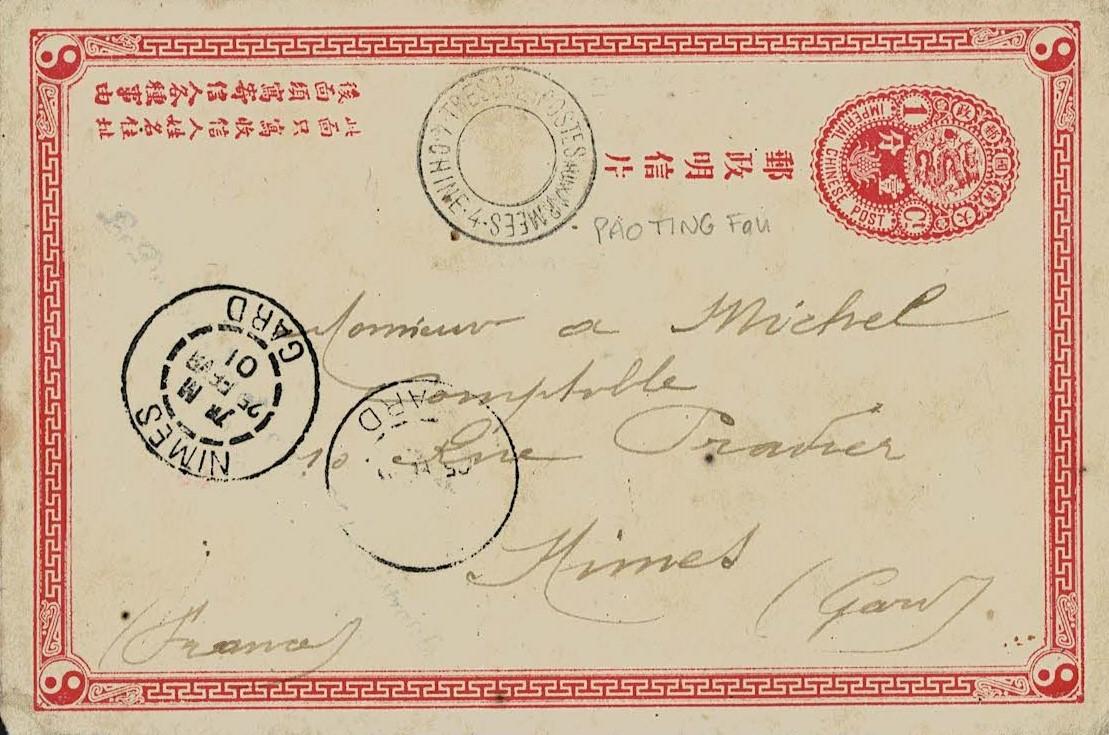 此面只寫收信人姓名住址
後面須寫寄信人各種事由
郵政明信片
大清國郵政
壹分
1 Ct
IMPERIAL CHINESE POST
TRESOR ET POSTES AUX ARMEES
CHINE 4
PAOTING Fou
NIMES
GARD
25 FEVR
01
GARD
Monsieur a Michel
Comptable
10 Rue Pradier
Nimes
(Gard).
(France)